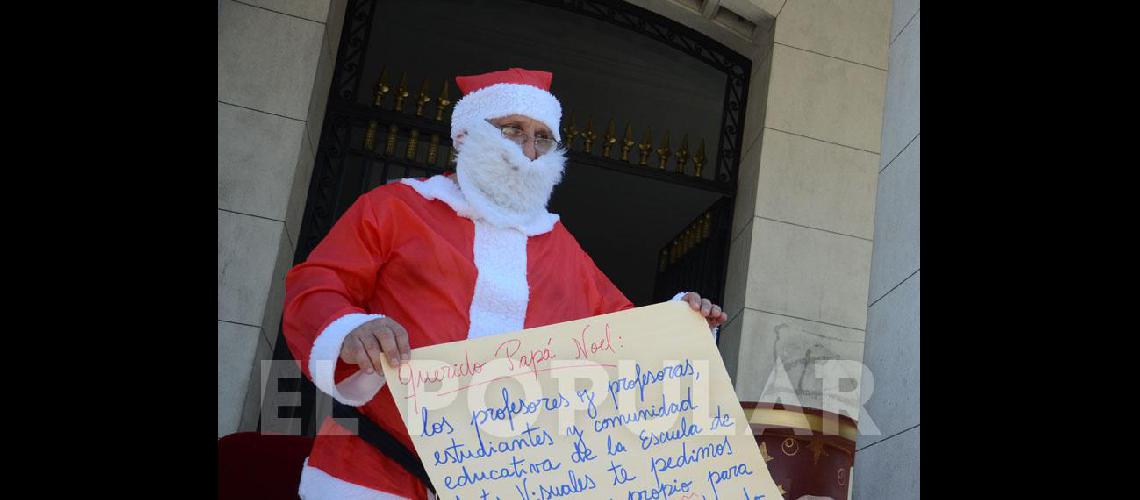 Querido Papá Noel:
los profesores y profesoras,
estudiantes y comunidad
educativa de la Escuela de
Arte Visuales te pedimos
propio para
EL POPULAR